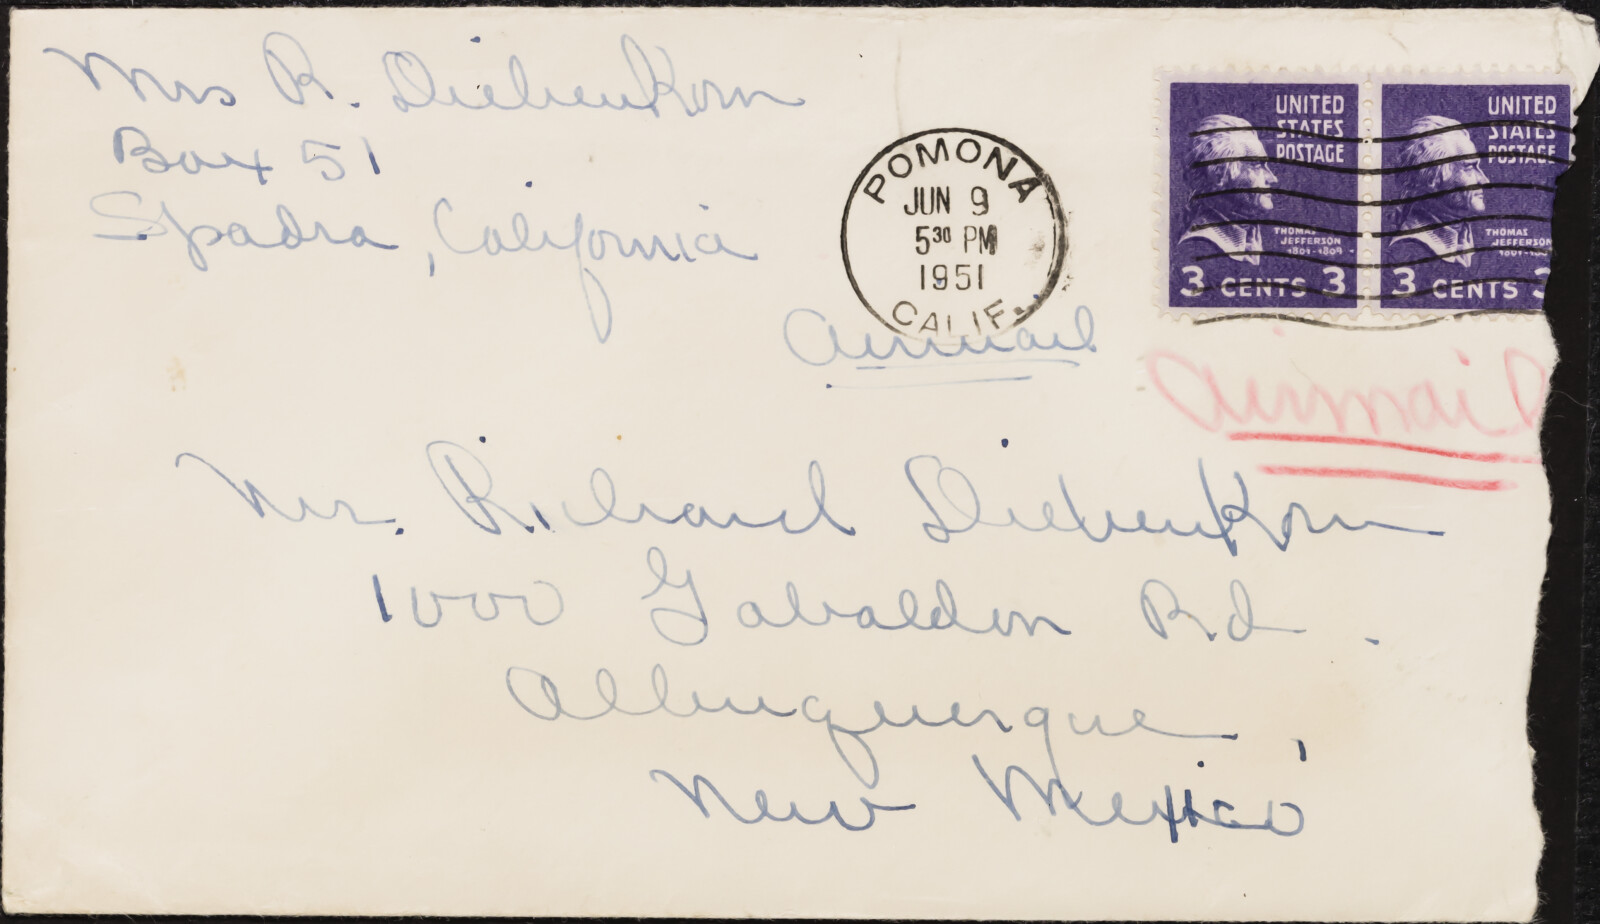 Mrs R. Diebenkorn
Box 51
Spadra, California
POMONA
JUN 9
5³⁰ PM
1951
CALIF.
UNITED
STATES
POSTAGE
THOMAS
JEFFERSON
1801-1809
3 CENTS 3
UNITED
STATES
POSTAGE
THOMAS
JEFFERSON
3 CENTS 3
Airmail
Airmail
Mr. Richard Diebenkorn
1000 Gabaldon Rd.
Albuquerque,
New Mexico